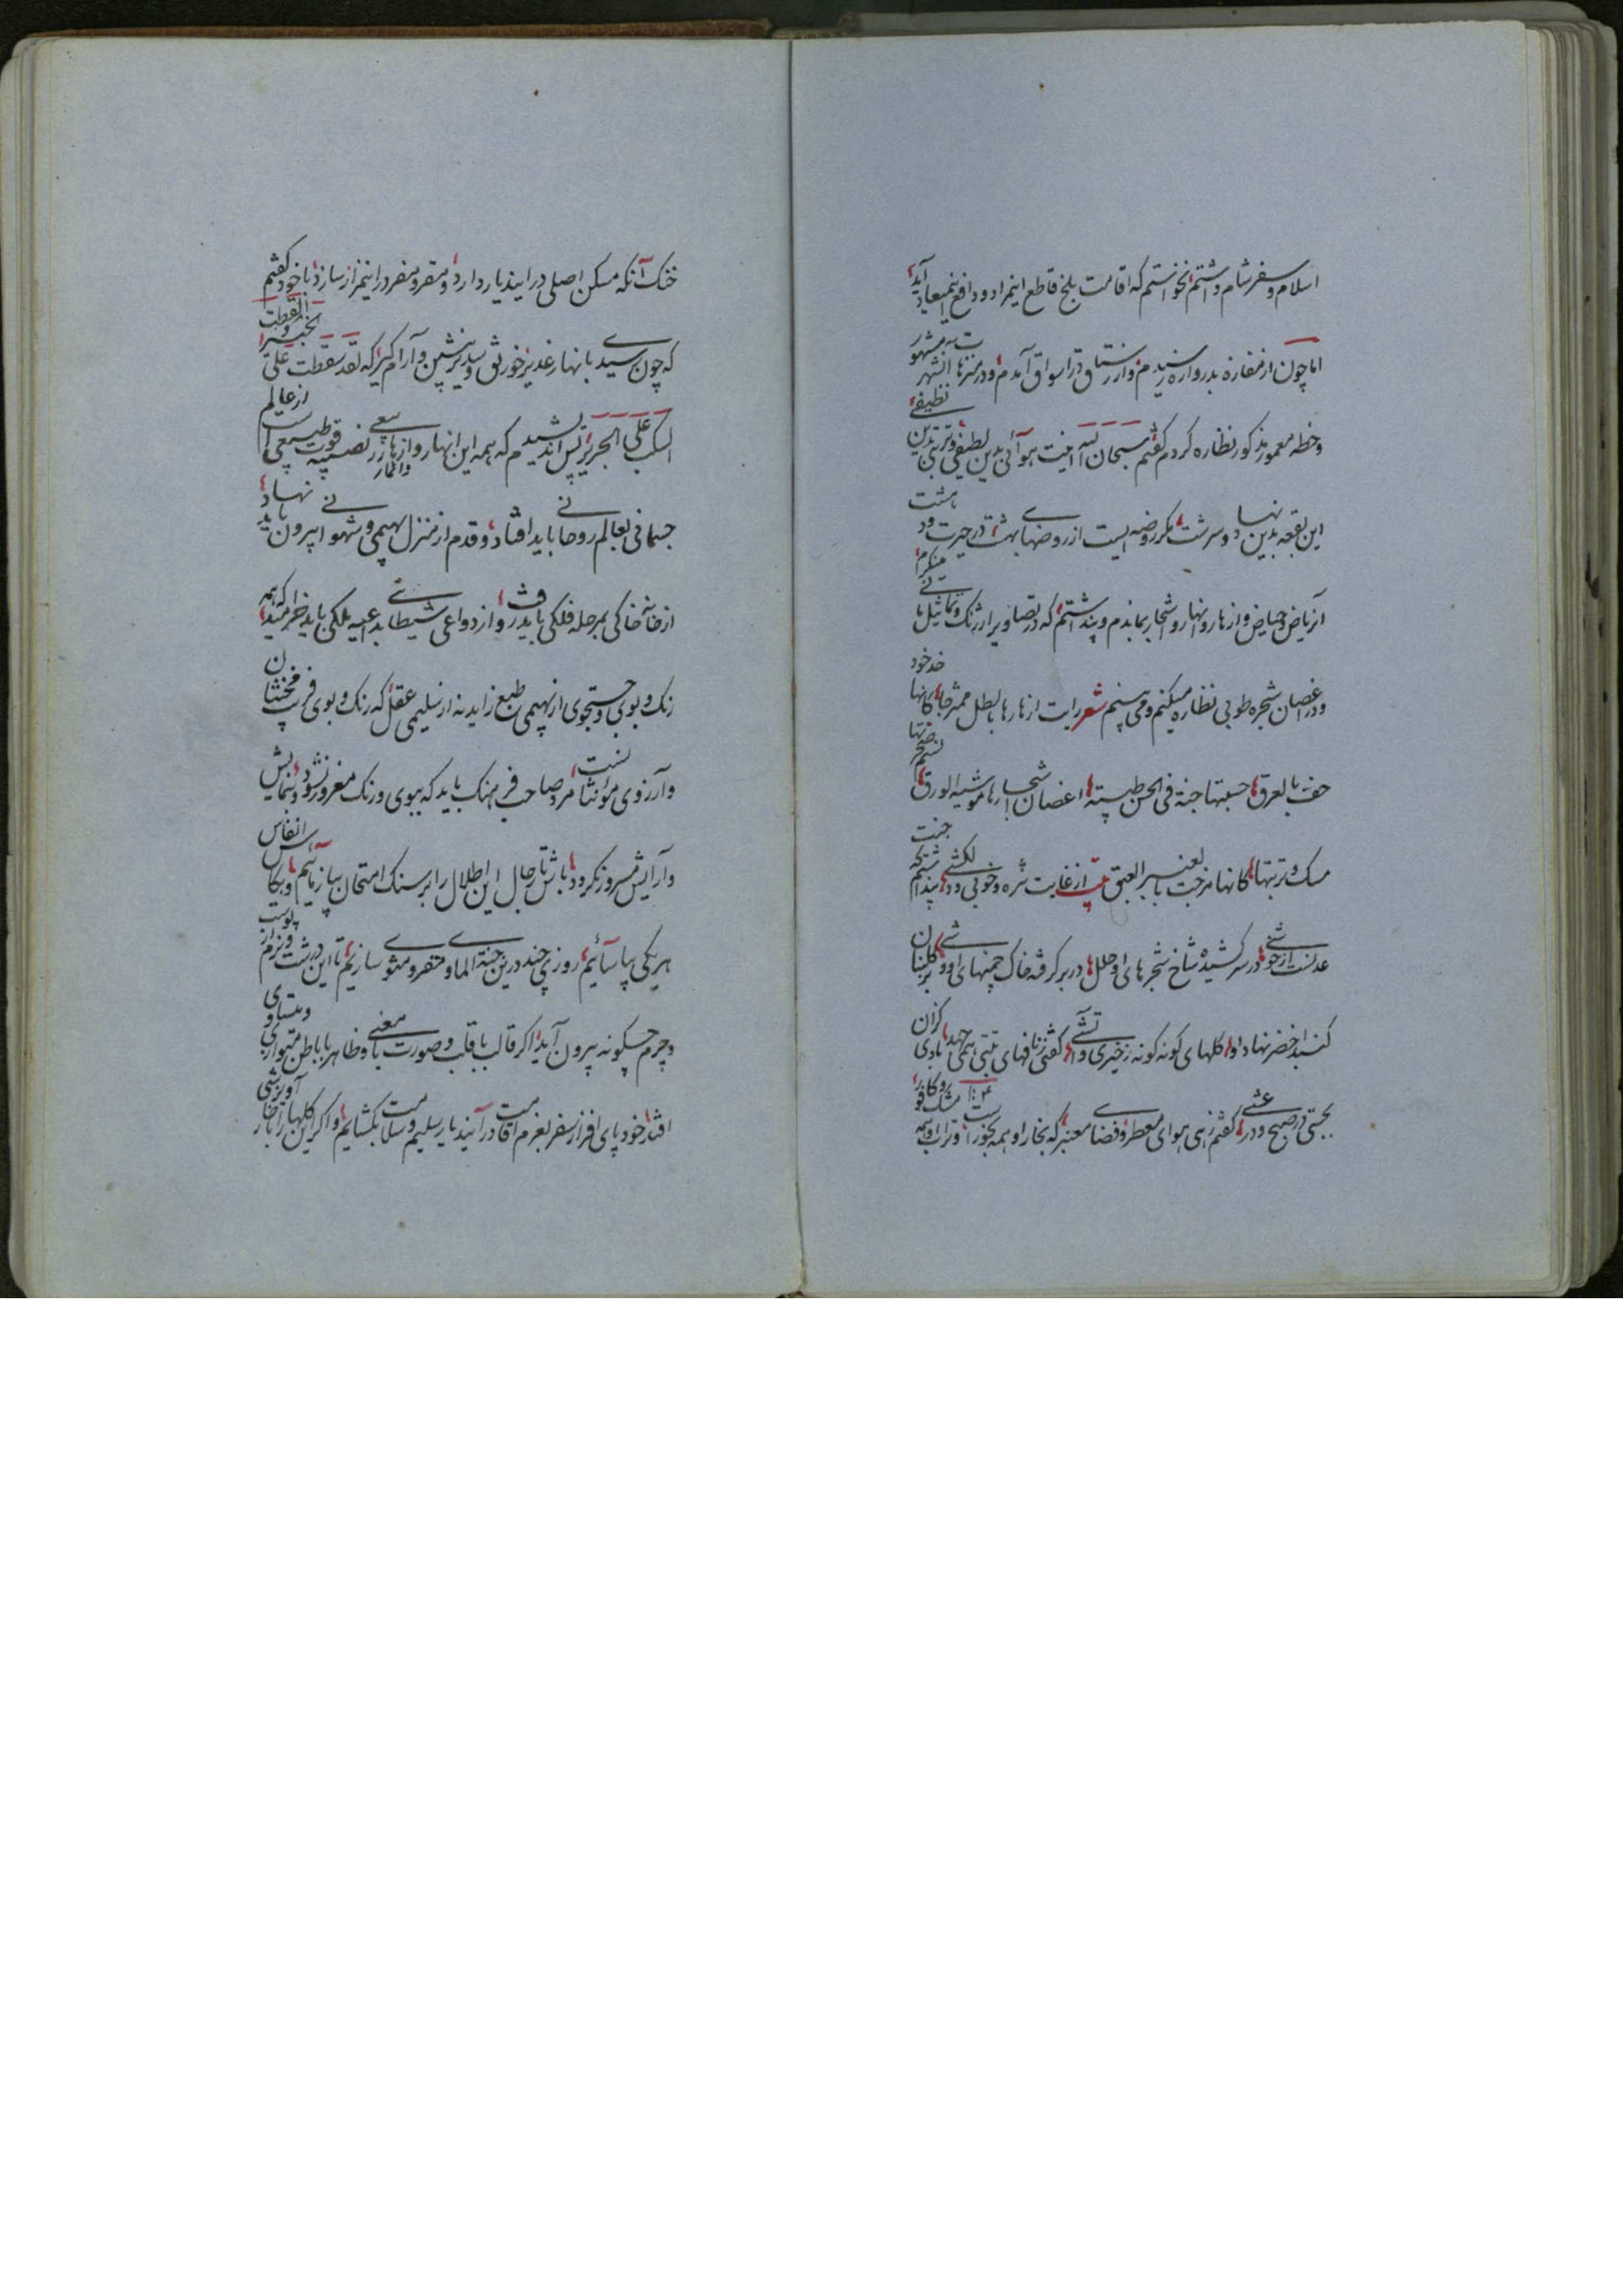 اسلام و سفر شام داشتم نخواستم که اقامت بلخ قاطع اینمراد و دافع اینمیعاد آید
اما چون از مفازه بدروازه رسیدم و از رستاق در اسواق آمدم و در منزهات آنشهر مشهور
و خطه معمور مذکور نظاره کردم گفتم سبحان الله اینت هوائی بدین لطیفی و تربتی بدین نظیفی
این بقعه بدین نهاد و سرشت مگر روضه ایست از روضهای بهشت در حیرت
آن ریاض و حیاض و ازهار و انهار و اشجار بماندم و پنداشتم که در تصاویر ارژنگ و تماثیل مانی مینگرم
و در اغصان شجره طوبی نظاره میکنم و می بینم شعر رایت ازهارها بالطل ممزجا کانها خد خود
حف بالعرق حسبتها جنة فی الحسن طیبته اغصان اشجارها موشیة الورق نسیم
مسک و تربتها کانها مزجت بالعنبر العبق بیت از غایت نزه و خوبی و دلکشی پنداشتم که جنت
عدنست از خوشی در سر کشیده شاخ شجرهای او حلل در بر گرفته خاک چمنهای او وشی گلبنان
گنبد اخضر نهاد او گلهای گونه گونه زخیری و آتشی گفتی ز نافهای تبتی همی جهد بادی کزان
بجستی در صبح و در عشی گفتم زهی هوای معطر و فضای معنبر که بخار او همه بخورست و تراب او همه مشک و کافور
خنک آنکه مسکن اصلی در ایندیار دارد و مقر و مفر در اینمزار سازد با خود گفتم
که چون رسیدی بانهار غدیر خورنق و سدیر بنشین و آرام گیر که لقد سقطت علی الخبیر و القطت
المسک علی الحریر پس اندیشیدم که همه این انهار و ازهار و اثمار نصیبه قوت طبیعی است از عالم
جسمانی بعالم روحانی باید افتاد و قدم از منزل بهیمی و شهوانی بیرون باید نهاد
از خانه خاکی بمرحله فلکی باید رفت و از دواعی شیطانی بداعیه ملکی باید خرامید که همه
رنگ و بوی و جستجوی از بهیمی طبع زاید نه از سلیمی عقل که رنگ و بوی فریب مخنثان
و آرزوی مؤنثانست مرد صاحب فرهنگ باید که ببوی و رنگ مغرور نشود و بنمایش
و آرایش مسرور نگردد باش تا رجال این اطلال را بر سنگ امتحان بیازمائیم و بکاس انفاس
هر یکی بیاسائیم روزی چند درین جنة الماوی مقر و مثوی سازیم تا این درشت و نرم از پوست
و چرم چگونه بیرون آید اگر قالب با قلب و صورت با معنی و ظاهر با باطن متوازی و متساوی
افتد خود پای افزار سفر بعزم اقامت در آئیند بار سلیم و سلامت بگشایم و اگر این گلها را با خار آویزشی